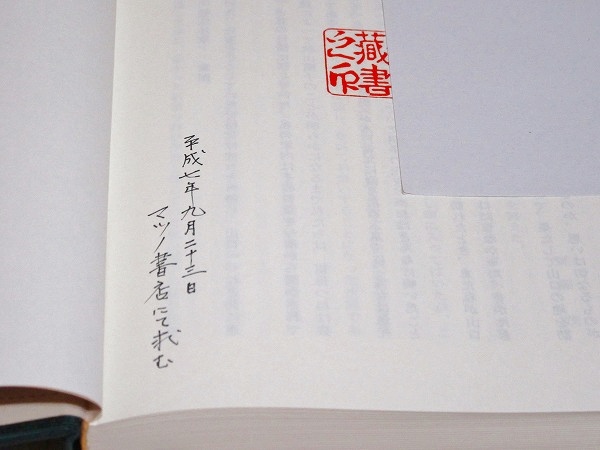 蔵書
之印
平成七年九月二十三日
マツノ書店にて求む